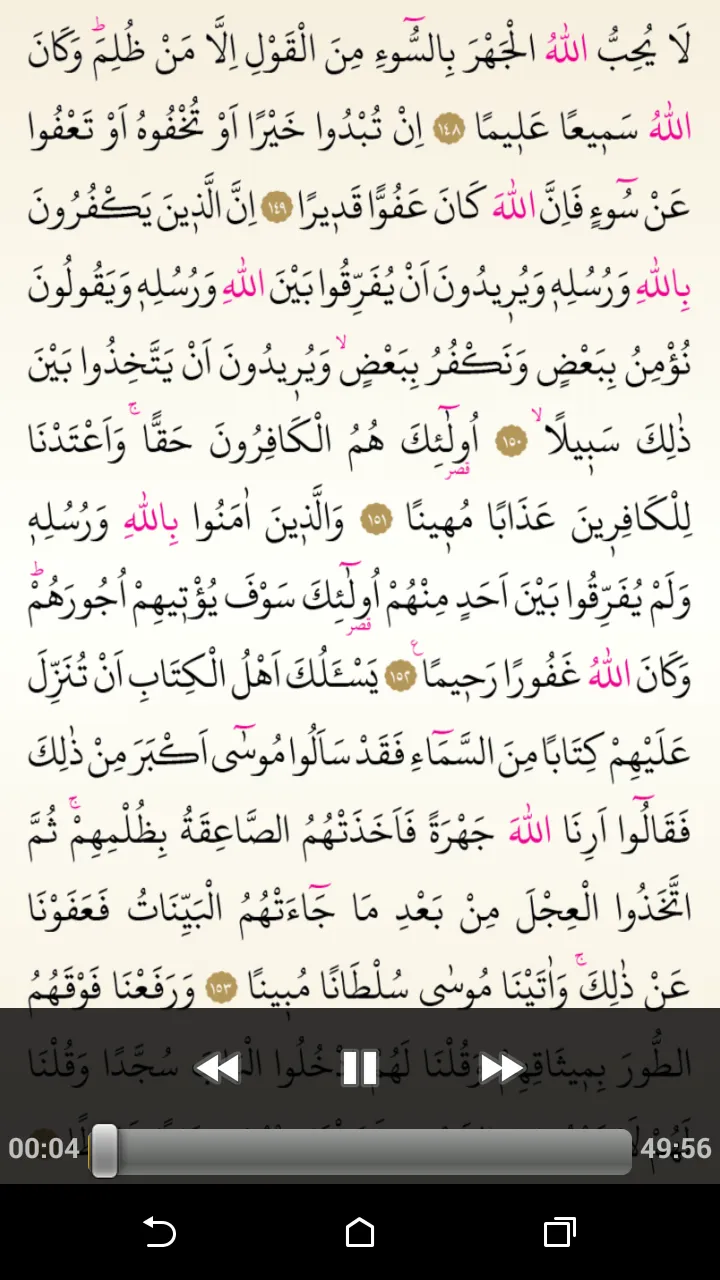 لَا يُحِبُّ اللّٰهُ الْجَهْرَ بِالسُّٓوءِ مِنَ الْقَوْلِ اِلَّا مَنْ ظُلِمَۜ وَكَانَ
اللّٰهُ سَم۪يعًا عَل۪يمًا ﴿١٤٨﴾ اِنْ تُبْدُوا خَيْرًا اَوْ تُخْفُوهُ اَوْ تَعْفُوا
عَنْ سُٓوءٍ فَاِنَّ اللّٰهَ كَانَ عَفُوًّا قَد۪يرًا ﴿١٤٩﴾ اِنَّ الَّذ۪ينَ يَكْفُرُونَ
بِاللّٰهِ وَرُسُلِه۪ وَيُر۪يدُونَ اَنْ يُفَرِّقُوا بَيْنَ اللّٰهِ وَرُسُلِه۪ وَيَقُولُونَ
نُؤْمِنُ بِبَعْضٍ وَنَكْفُرُ بِبَعْضٍۙ وَيُر۪يدُونَ اَنْ يَتَّخِذُوا بَيْنَ
ذٰلِكَ سَب۪يلًاۙ ﴿١٥٠﴾ اُو۬لٰٓئِكَ هُمُ الْكَافِرُونَ حَقًّاۚ وَاَعْتَدْنَا
قصر
لِلْكَافِر۪ينَ عَذَابًا مُه۪ينًا ﴿١٥١﴾ وَالَّذ۪ينَ اٰمَنُوا بِاللّٰهِ وَرُسُلِه۪
وَلَمْ يُفَرِّقُوا بَيْنَ اَحَدٍ مِنْهُمْ اُو۬لٰٓئِكَ سَوْفَ يُؤْت۪يهِمْ اُجُورَهُمْۜ
قصر
وَكَانَ اللّٰهُ غَفُورًا رَح۪يمًا ع ﴿١٥٢﴾ يَسْـَٔلُكَ اَهْلُ الْكِتَابِ اَنْ تُنَزِّلَ
عَلَيْهِمْ كِتَابًا مِنَ السَّمَٓاءِ فَقَدْ سَاَلُوا مُوسٰٓى اَكْبَرَ مِنْ ذٰلِكَ
فَقَالُٓوا اَرِنَا اللّٰهَ جَهْرَةً فَاَخَذَتْهُمُ الصَّاعِقَةُ بِظُلْمِهِمْۚ ثُمَّ
اتَّخَذُوا الْعِجْلَ مِنْ بَعْدِ مَا جَٓاءَتْهُمُ الْبَيِّنَاتُ فَعَفَوْنَا
عَنْ ذٰلِكَۚ وَاٰتَيْنَا مُوسٰى سُلْطَانًا مُب۪ينًا ﴿١٥٣﴾ وَرَفَعْنَا فَوْقَهُمُ
الطُّورَ بِم۪يثَاقِهِمْ وَقُلْنَا لَهُمُ ادْخُلُوا الْبَابَ سُجَّدًا وَقُلْنَا
لَهُمْ لَا
00:04 49:56